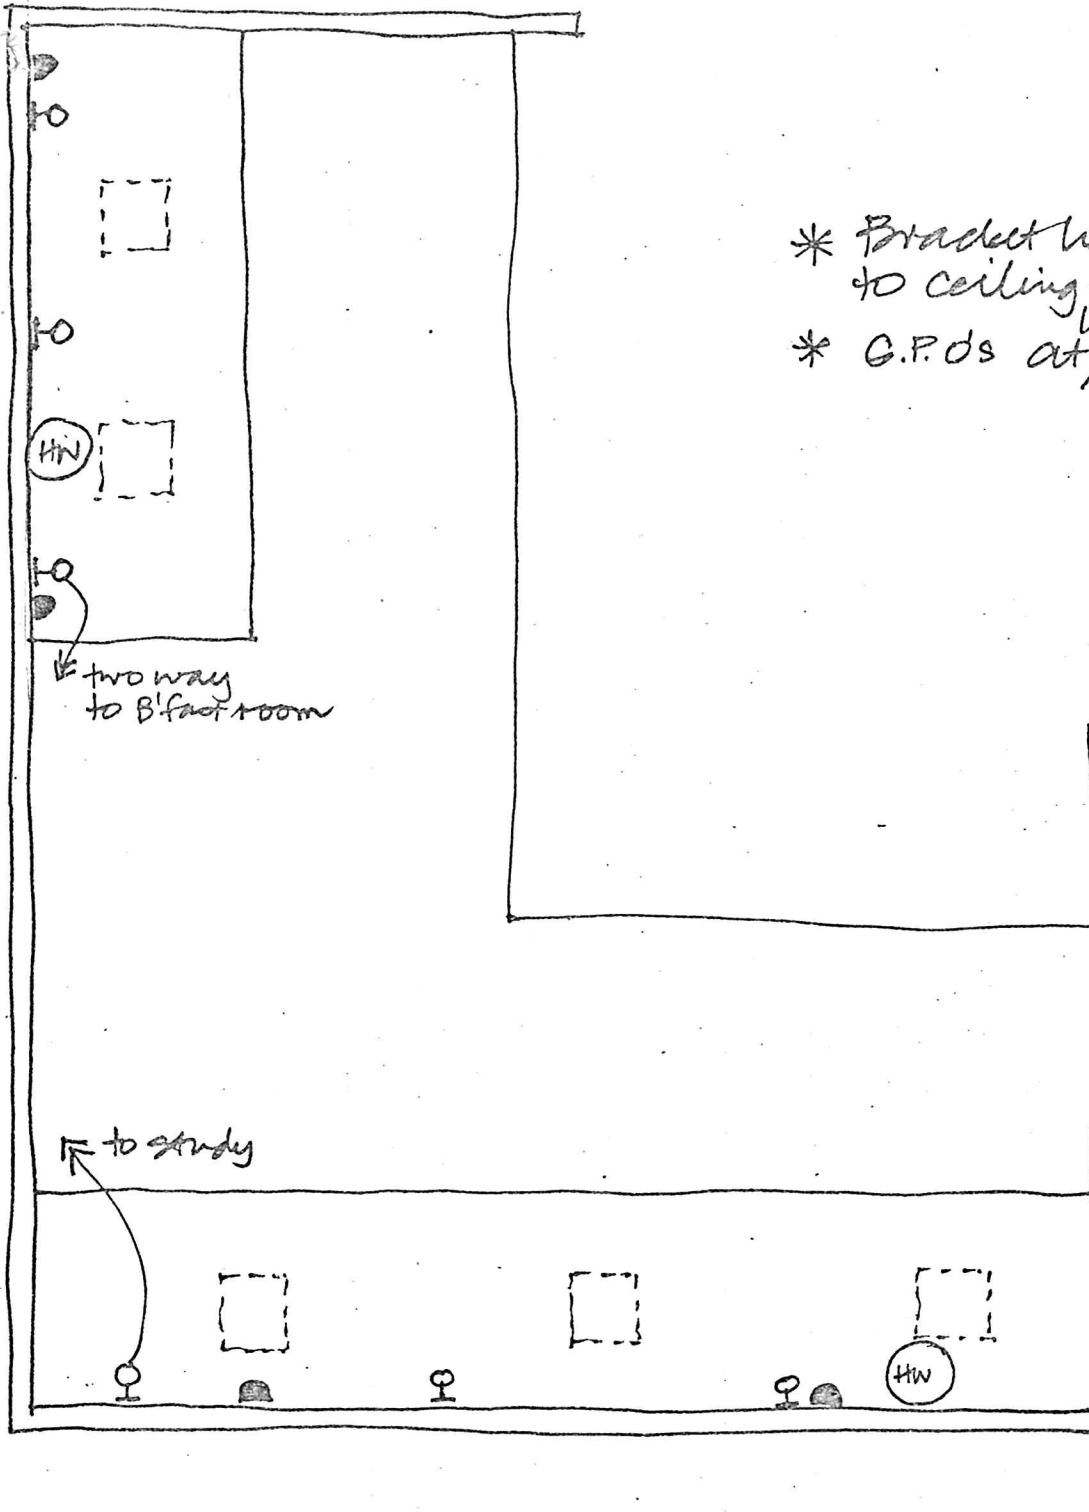 * Bracket
to ceiling
* G.P.O's at
HW
two way
to B'fast room
to study
HW